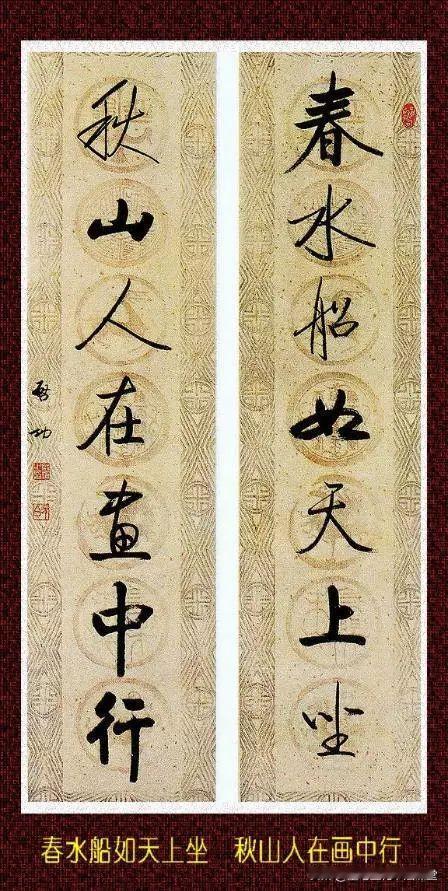 春水船如天上坐
秋山人在畫中行
啟功
春水船如天上坐 秋山人在画中行